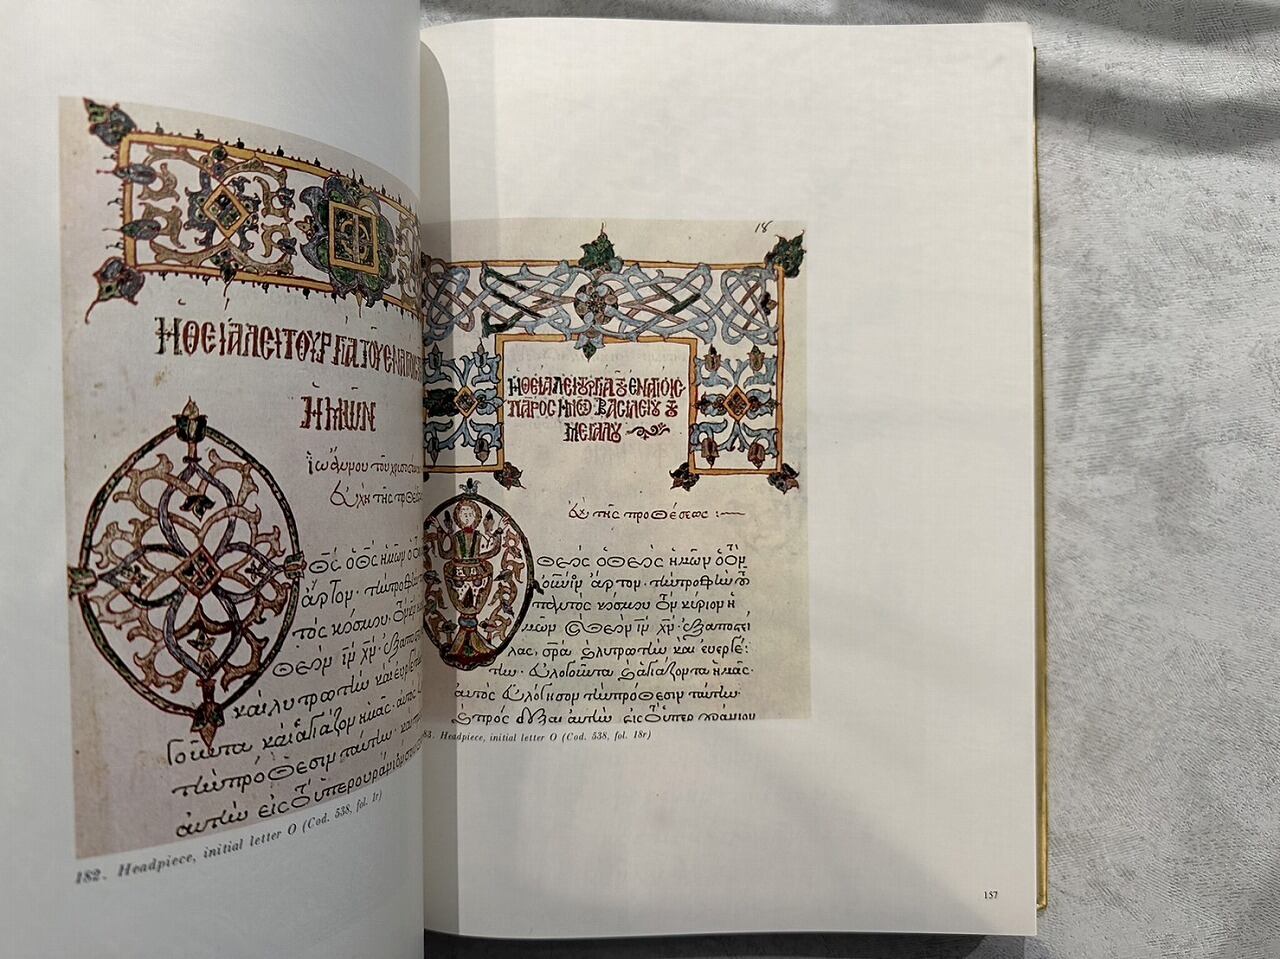 ἡ θεία λειτουργία τοῦ ἐν ἁγίοις
ἡμῶν
Ἰωάννου τοῦ
εὐχὴ τῆς
θς ὁ θς ἡμῶν ὁ τὸν
ἄρτον
τὸς κόσμου τὸν κν ἡμῶν
θεὸν ιν χν ἐξαποστεί
καὶ λυτρωτὴν καὶ εὐεργέτην
λογοῦντα καὶ ἁγιάζοντα ἡμᾶς. αὐτὸς
τὴν πρόθεσιν ταύτην. καὶ
αὐτὴν εἰς τὸ ὑπερουράνιόν σου
182. Headpiece, initial letter O (Cod. 538, fol. 1r)
18
ἡ θεία λειτουργία τοῦ ἐν ἁγίοις
πατρὸς ἡμῶν βασιλείου τοῦ
μεγάλου
εὐχὴ τῆς προθέσεως :
θεὸς ὁ θεὸς ἡμῶν ὁ τὸν
οὐράνιον ἄρτον. τὴν τροφὴν τοῦ
παντὸς κόσμου τὸν κύριον ἡ
μῶν καὶ θεὸν ιν χν. ἐξαποστεί
λας, σρα καὶ λυτρωτὴν καὶ εὐεργέ
την. εὐλογοῦντα καὶ ἁγιάζοντα ἡμᾶς.
αὐτὸς εὐλόγησον τὴν πρόθεσιν ταύτην.
καὶ πρόσδεξαι αὐτὴν εἰς τὸ ὑπερουράνιον
83. Headpiece, initial letter O (Cod. 538, fol. 18r)
157